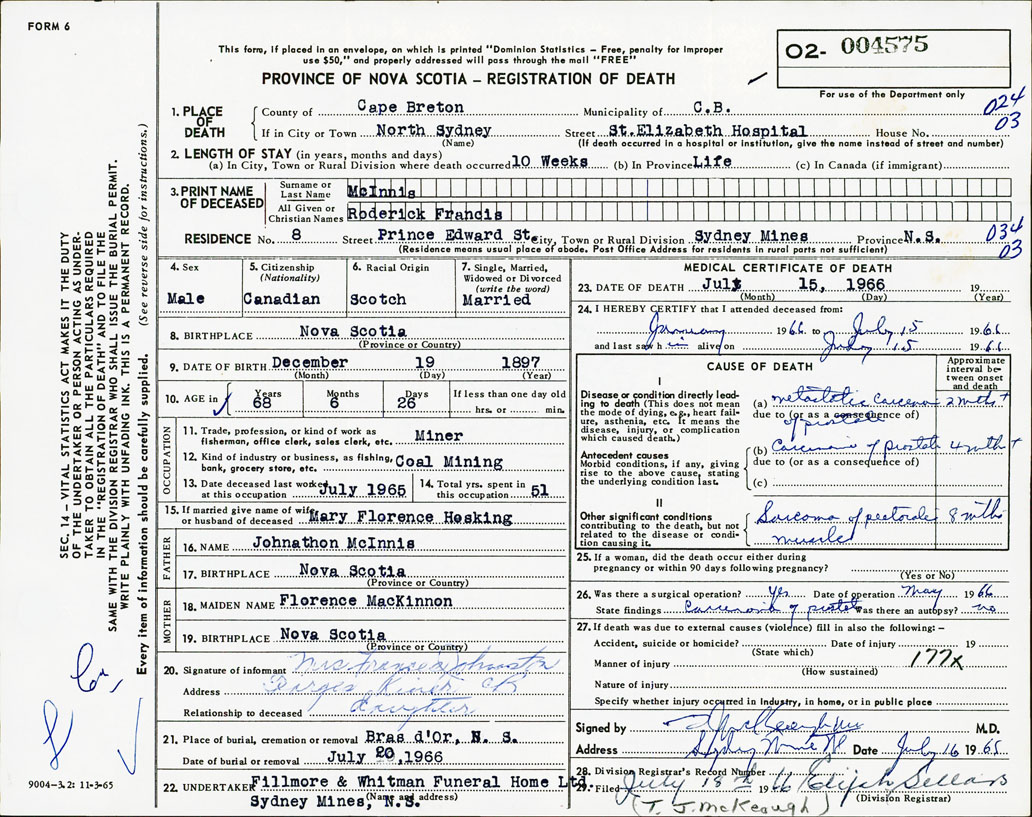 FORM 6
This form, if placed in an envelope, on which is printed "Dominion Statistics – Free, penalty for improper
use $50," and properly addressed will pass through the mail "FREE"
PROVINCE OF NOVA SCOTIA – REGISTRATION OF DEATH
O2- 004575
For use of the Department only
024
03
1. PLACE OF DEATH
County of Cape Breton Municipality of C.B.
If in City or Town North Sydney Street St.Elizabeth Hospital House No.
(Name) (If death occurred in a hospital or institution, give the name instead of street and number)
2. LENGTH OF STAY (in years, months and days)
(a) In City, Town or Rural Division where death occurred 10 Weeks (b) In Province Life (c) In Canada (if immigrant)
3. PRINT NAME OF DECEASED
Surname or Last Name McInnis
All Given or Christian Names Roderick Francis
RESIDENCE No. 8 Street Prince Edward St. City, Town or Rural Division Sydney Mines Province N.S.
034
03
(Residence means usual place of abode. Post Office Address for residents in rural parts not sufficient)
4. Sex
Male
5. Citizenship
(Nationality)
Canadian
6. Racial Origin
Scotch
7. Single, Married,
Widowed or Divorced
(write the word)
Married
8. BIRTHPLACE Nova Scotia
(Province or Country)
9. DATE OF BIRTH December 19 1897
(Month) (Day) (Year)
10. AGE in Years Months Days If less than one day old
68 6 26 hrs. or min.
OCCUPATION
11. Trade, profession, or kind of work as
fisherman, office clerk, sales clerk, etc. Miner
12. Kind of industry or business, as fishing,
bank, grocery store, etc. Coal Mining
13. Date deceased last worked
at this occupation July 1965
14. Total yrs. spent in
this occupation 51
15. If married give name of wife
or husband of deceased Mary Florence Hosking
FATHER
16. NAME Johnathon McInnis
17. BIRTHPLACE Nova Scotia
(Province or Country)
MOTHER
18. MAIDEN NAME Florence MacKinnon
19. BIRTHPLACE Nova Scotia
(Province or Country)
20. Signature of informant Mrs Johnston
Address CB
Relationship to deceased daughter
21. Place of burial, cremation or removal Bras d'Or, N. S.
Date of burial or removal July 20,1966
22. UNDERTAKER Fillmore & Whitman Funeral Home Ltd.
(Name and address)
Sydney Mines, N.S.
MEDICAL CERTIFICATE OF DEATH
23. DATE OF DEATH July 15, 1966 19
(Month) (Day) (Year)
24. I HEREBY CERTIFY that I attended deceased from:
January 1966 to July 15 1966
and last saw him alive on July 15 1966
CAUSE OF DEATH
Approximate
interval be-
tween onset
and death
I
Disease or condition directly lead-
ing to death (This does not mean
the mode of dying, e.g., heart fail-
ure, asthenia, etc. It means the
disease, injury, or complication
which caused death.)
(a) metastatic Carcinoma 2 mths +
due to (or as a consequence of)
of prostate
Antecedent causes
Morbid conditions, if any, giving
rise to the above cause, stating
the underlying condition last.
(b) Carcinoma of prostate 4 mths +
due to (or as a consequence of)
(c)
II
Other significant conditions
contributing to the death, but not
related to the disease or condi-
tion causing it.
Sarcoma of pectorale 8 mths
muscle
25. If a woman, did the death occur either during
pregnancy or within 90 days following pregnancy?
(Yes or No)
26. Was there a surgical operation? Yes Date of operation May 1966
State findings Carcinoma of prostate Was there an autopsy? no
27. If death was due to external causes (violence) fill in also the following: –
Accident, suicide or homicide? Date of injury 19
(State which)
Manner of injury 177x
(How sustained)
Nature of injury
Specify whether injury occurred in industry, in home, or in public place
Signed by M.D.
Address Sydney Mines NS Date July 16 1965
28. Division Registrar's Record Number
29. Filed July 18th 1966 Elijah Sellars
(T. J. McKeough) (Division Registrar)
9004–3.2: 11-3-65
SEC. 14 – VITAL STATISTICS ACT MAKES IT THE DUTY
OF THE UNDERTAKER OR PERSON ACTING AS UNDER-
TAKER TO OBTAIN ALL THE PARTICULARS REQUIRED
IN THE "REGISTRATION OF DEATH" AND TO FILE THE
SAME WITH THE DIVISION REGISTRAR WHO SHALL ISSUE THE BURIAL PERMIT.
WRITE PLAINLY WITH UNFADING INK. THIS IS A PERMANENT RECORD.
Every item of information should be carefully supplied. (See reverse side for instructions.)